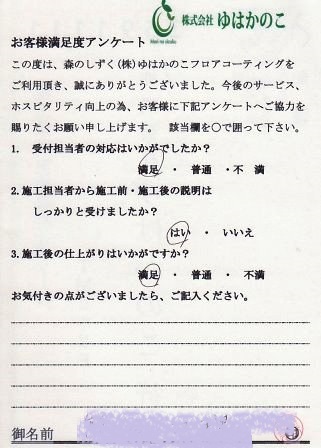 株式会社 ゆはかのこ
お客様満足度アンケート
この度は、森のしずく(株)ゆはかのこフロアコーティングを
ご利用頂き、誠にありがとうございました。今後のサービス、
ホスピタリティ向上の為、お客様に下記アンケートへご協力を
賜りたくお願い申し上げます。 該当欄を○で囲って下さい。
1. 受付担当者の対応はいかがでしたか？
満足 ・ 普通 ・不 満
2.施工担当者から施工前・施工後の説明は
しっかりと受けましたか？
はい ・ いいえ
3.施工後の仕上がりはいかがですか？
満足 ・ 普通 ・ 不満
お気付きの点がございましたら、ご記入ください。
御名前